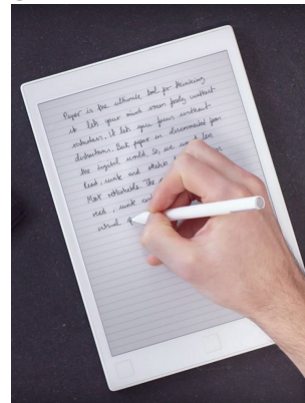 Paper is the ultimate tool for thinking
it lets your mind roam freely without
. It lets you focus without
distractions. But paper is disconnected from
the digital world. So, we
Read, write and sketch
Meet remarkable. The
read, write